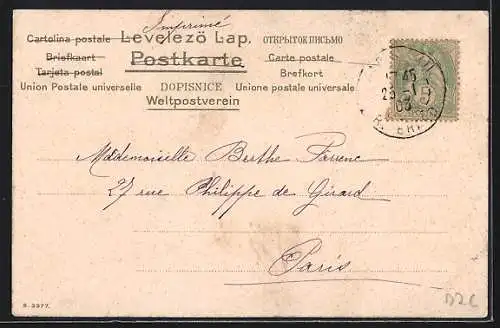 Imprimé
Cartolina postale Levelezö Lap. ОТКРЫТОЕ ПИСЬМО
Briefkaart Postkarte Carte postale
Tarjeta postal Brefkort
Union Postale universelle DOPISNICE Unione postale universale
Weltpostverein
45
25 - 1
03
R. ERL
Mademoiselle Berthe Farenc
27 rue Philippe de Girard
Paris
S. 3377.
D2C